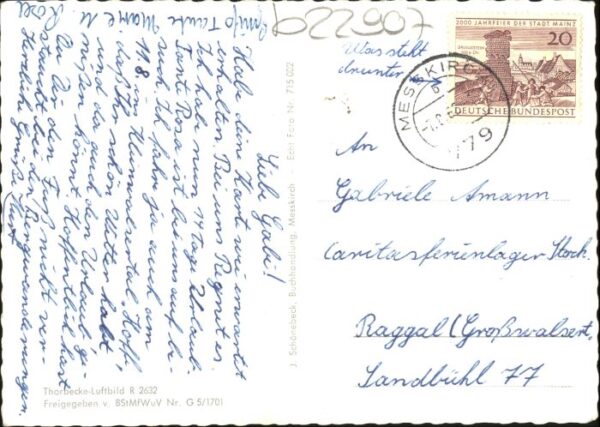 Liebe Gabi!
Hab deine Karte wie erwartet
erhalten. Bei uns Regnet es
Ich habe nun 14 Tage Urlaub.
Tante Rosa ist bei uns auf Be-
such. Ich fahr ja auch am
11.8 ins Kleinwalsertal. Hoff,
daß Ihr schön Wetter habt
und da auch den Urlaub ge-
nießen könnt. Hoffentlich hast
Du Dir den Fuß nicht ver-
staucht bei den Bergwanderungen.
Herzliche Grüße
Tante
622907
Was steht
drunter
2000 JAHRFEIER DER STADT MAINZ
20
DEUTSCHE BUNDESPOST
MESSKIRCH
779
An
Gabriele Amann
Caritasferienlager Stock.
Raggal (Großwalsert.
Landbühl 77
J. Schönebeck, Buchhandlung, Messkirch - Echt Foto Nr. 715 022
Thorbecke-Luftbild R 2632
Freigegeben v. BStMfWuV Nr. G 5/1701